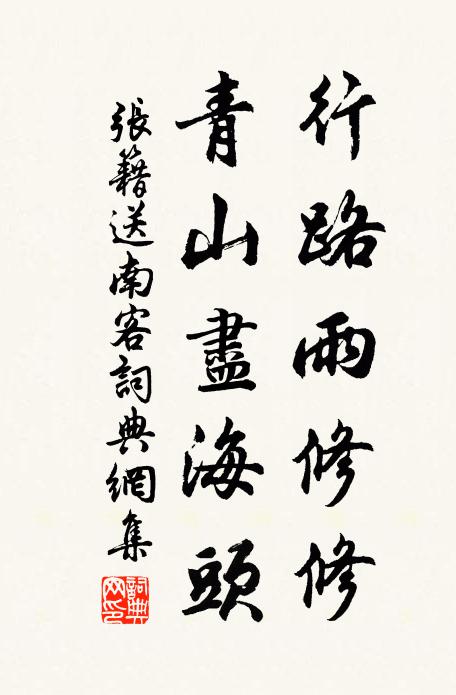 行路雨修修
青山盡海頭
張籍送南客詞典網集
詞典网印